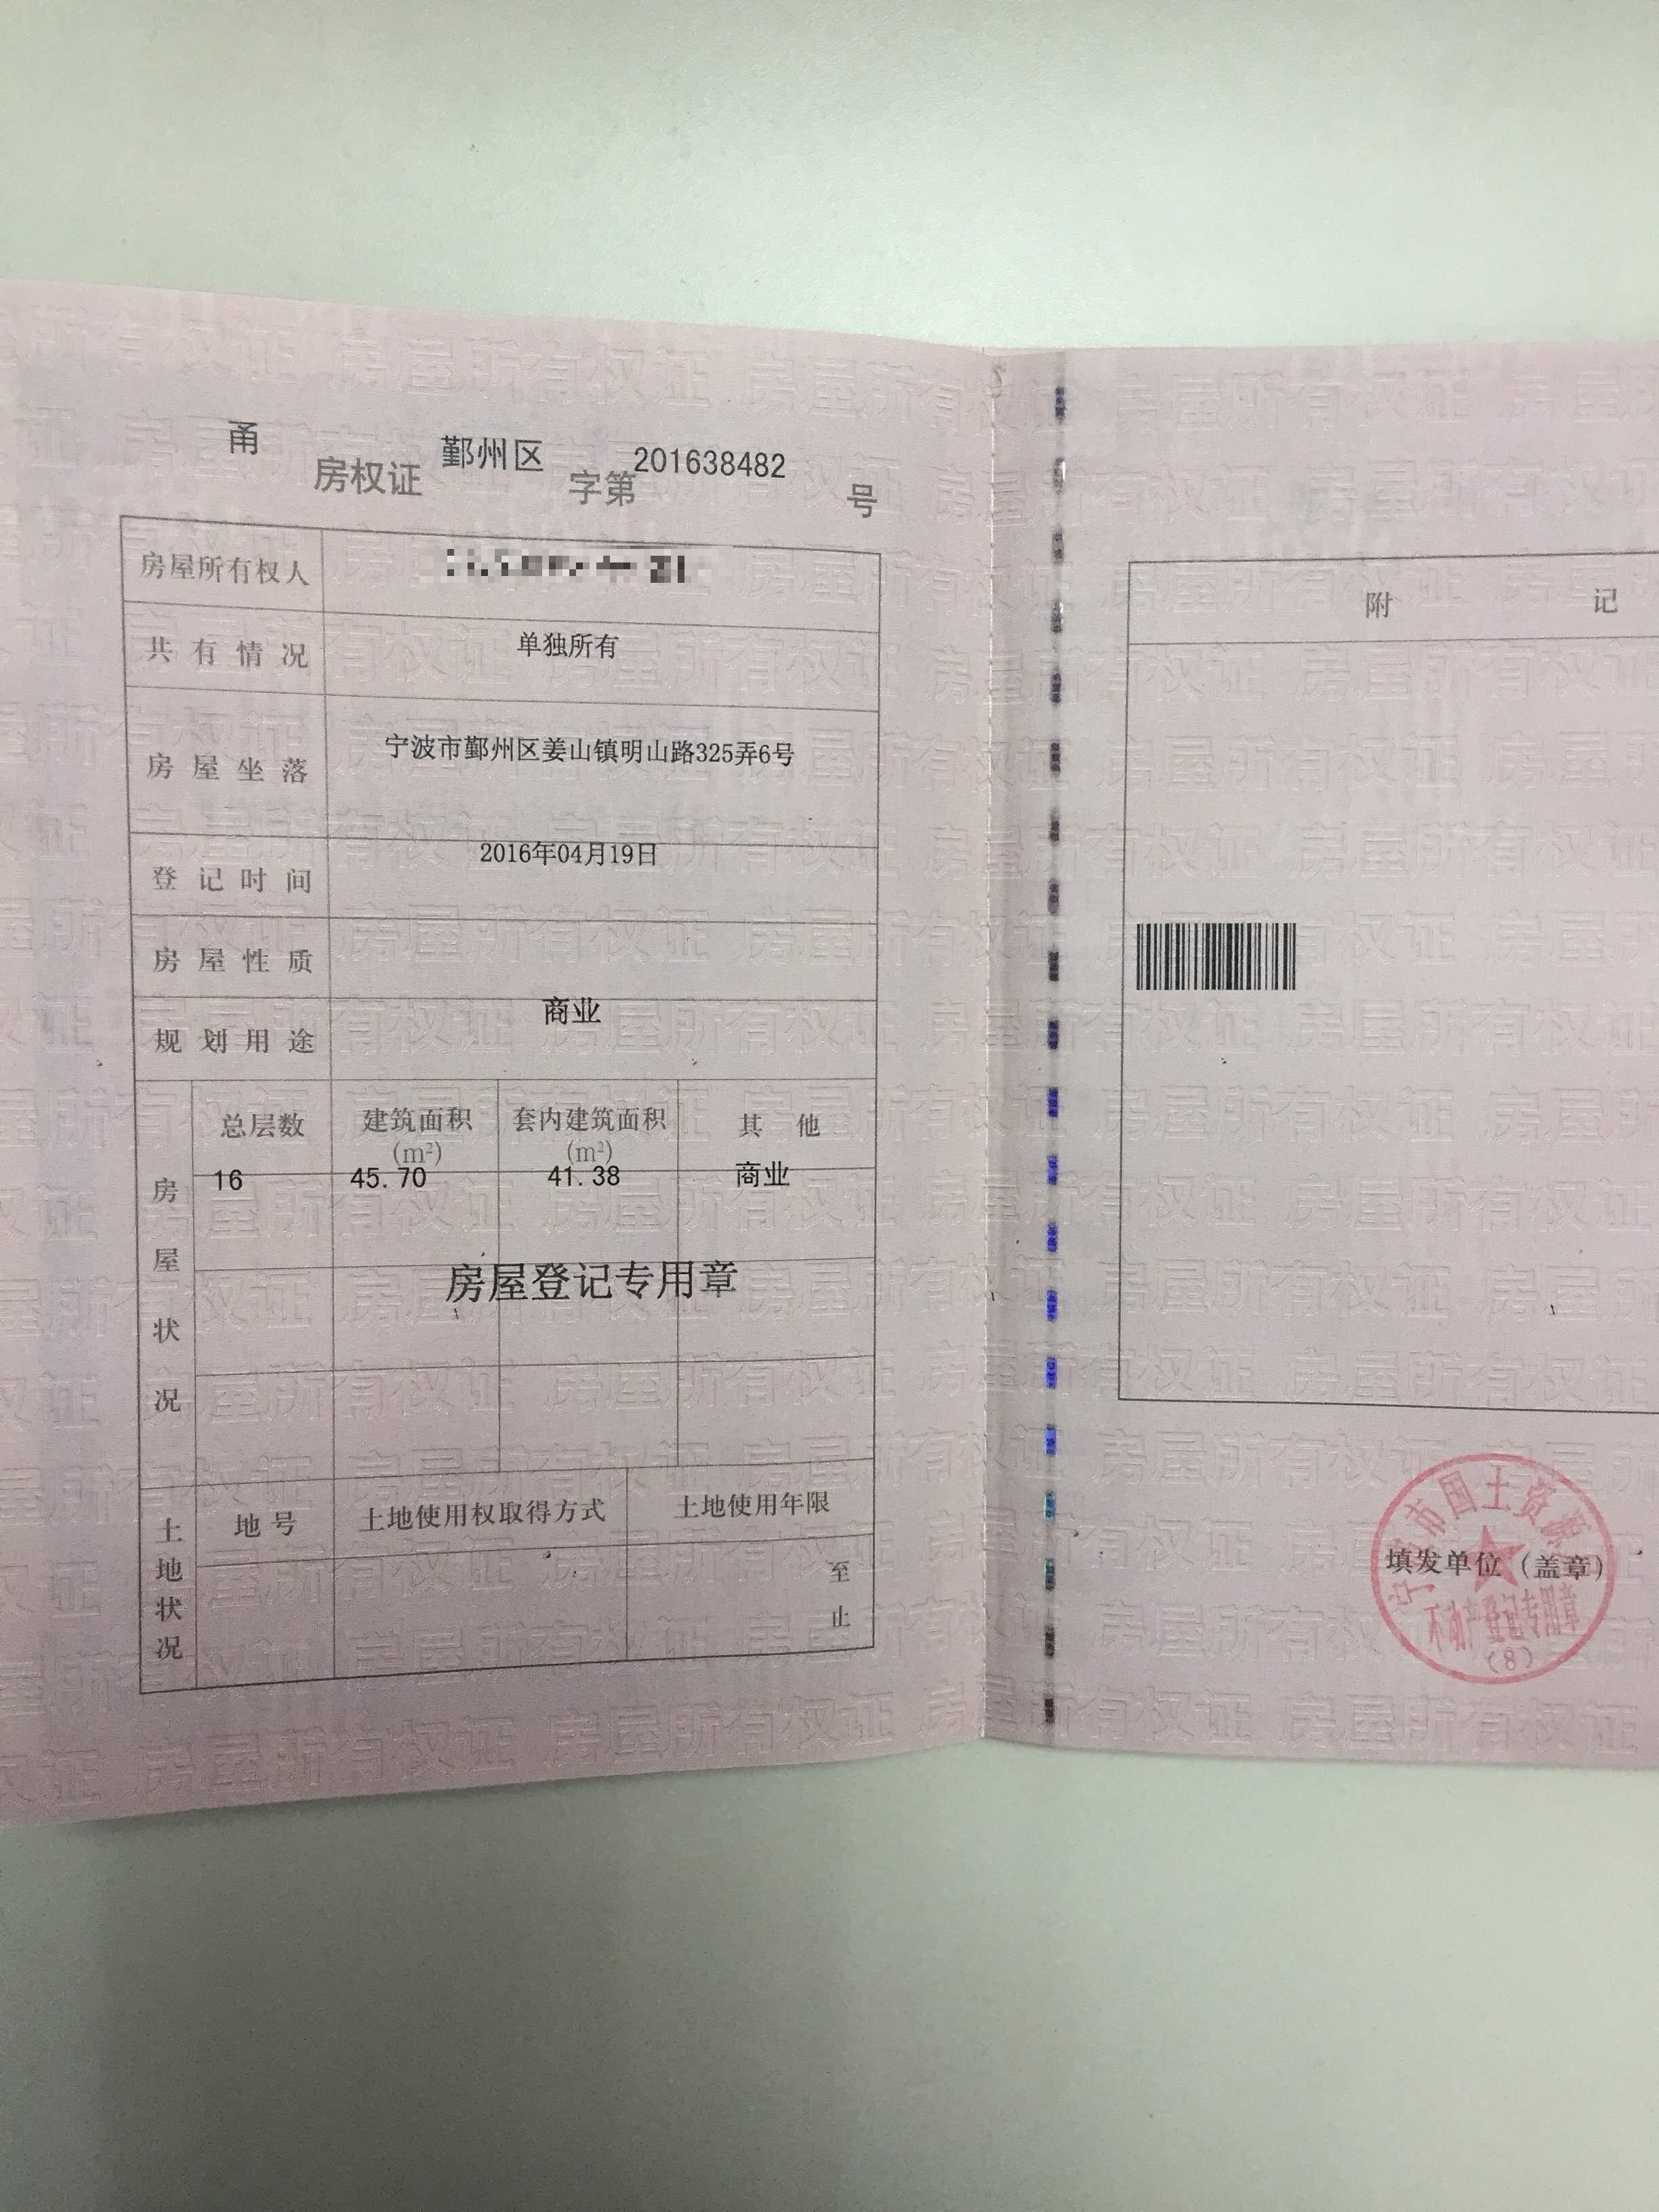 甬 房权证 鄞州区 字第 201638482 号
房屋所有权人
共有情况 单独所有
房屋坐落 宁波市鄞州区姜山镇明山路325弄6号
登记时间 2016年04月19日
房屋性质
规划用途 商业
房屋状况
总层数 建筑面积(m²) 套内建筑面积(m²) 其他
16 45.70 41.38 商业
房屋登记专用章
土地状况
地号 土地使用权取得方式 土地使用年限
至
止
附 记
填发单位（盖章）
宁波市国土资源
不动产登记专用章
(8)